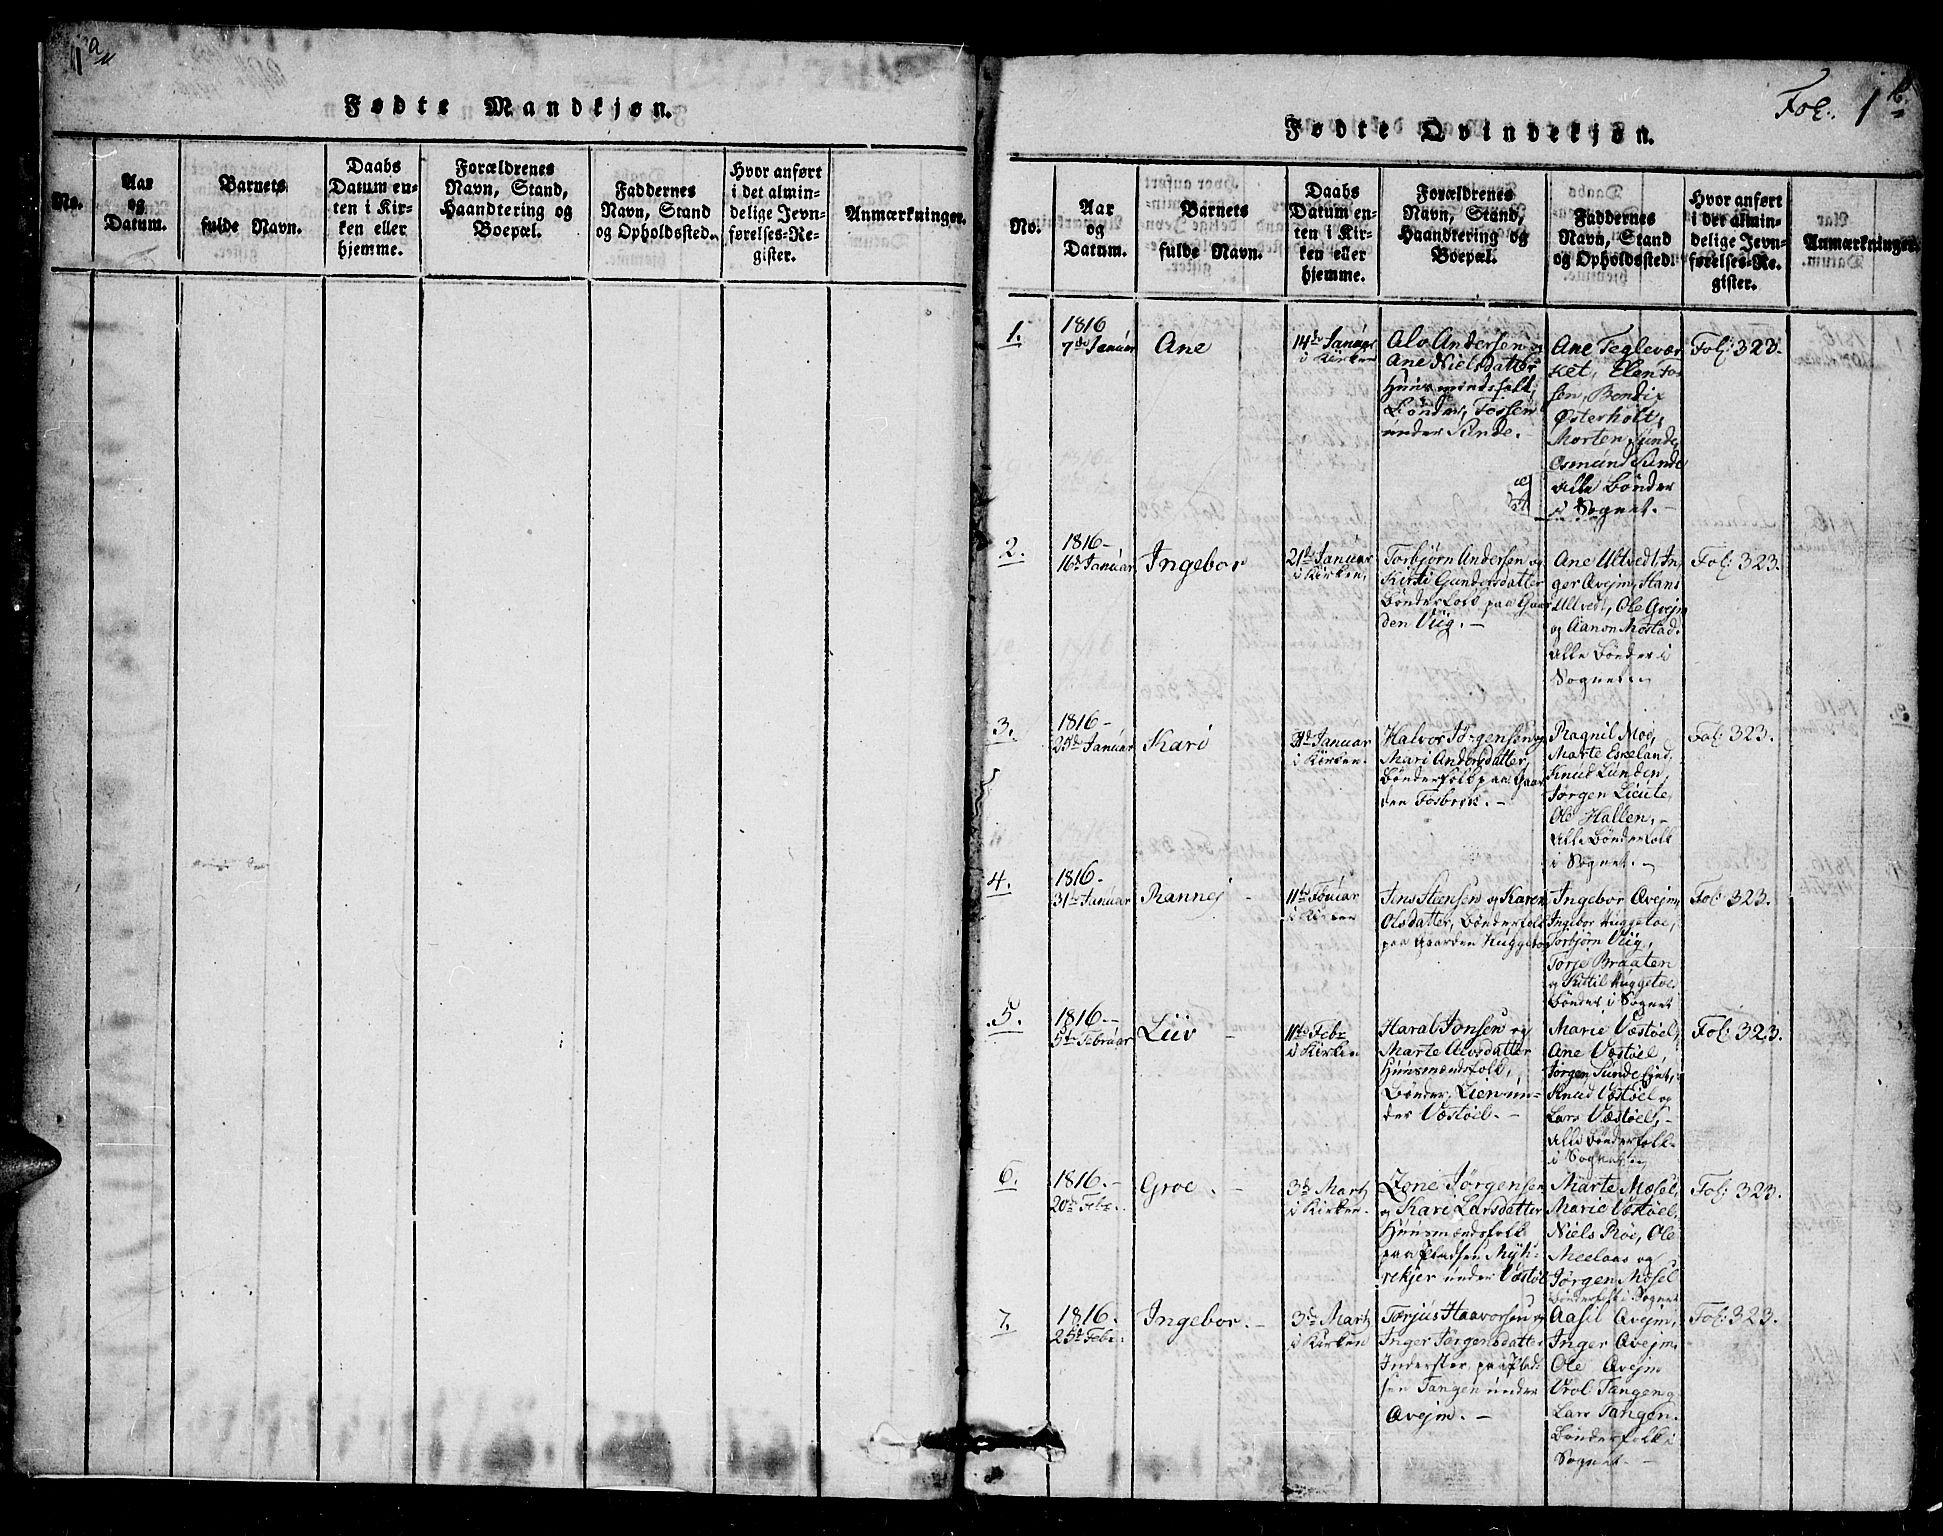 1 a
Fødte Mandkjøn.
No.
Aar
og
Datum.
Barnets
fulde Navn.
Daabs
Datum en-
ten i Kir-
ken eller
hjemme.
Forældrenes
Navn, Stand,
Haandtering og
Boepæl.
Faddernes
Navn, Stand
og Opholdssted.
Hvor anført
i det almin-
delige Jevn-
førelses-Re-
gister.
Anmærkninger.
Fol. 1 b.
Fødte Qvindekjøn.
No.
Aar
og
Datum.
Barnets
fulde Navn.
Daabs
Datum en-
ten i Kir-
ken eller
hjemme.
Forældrenes
Navn, Stand,
Haandtering og
Boepæl.
Faddernes
Navn, Stand
og Opholdssted.
Hvor anført
i det almin-
delige Jevn-
førelses-Re-
gister.
Anmærkninger.
1.
1816
7de Januar
Ane
14de Januar
i Kirken
Alv Andersen og
Ane Nielsdatter
Huusmandsfolk,
Bønder, Fossen
under Sunde.
Ane Teglevær
ket, Elen Fos
sen, Bendix
Østerholt,
Morten Sunde,
Osmund Sunde
alle Bønder
i Sognet.
Fol: 323.
2.
1816-
16de Januar
Ingebor
21de Januar
i Kirken,
Torbjørn Andersen og
Kirsti Gundersdatter
Bønderfolk paa Gaar
den Viig.
Ane Ultvedt, In
ger Avejm, Hans
Ultvedt, Ole Avejm
og Aanon Mostad.
alle Bønder i
Sognet
Fol: 323.
3.
1816-
25de Januar
Kari
Januar
i Kirken.
Halvor Jørgensen og
Mari Andersdatter,
Bønderfolk paa Gaar
den Fosbrek.
Ragnil Moe,
Marte Eskeland,
Knud Lunden,
Jørgen Lieute,
Ole Hallen,
alle Bønderfolk
i Sognet.
Fol: 323.
4.
1816-
31te Januar
Rannej
11te
i Kirken
Jens Steensen og Karen
Olsdatter, Bønderfolk
paa Gaarden Huggeto
Ingebor Avejm,
Ingebor Huggetoe,
Torbjørn Viig,
Torje Braaten
og Kittil Huggetoe,
Bønder i Sognet
Fol: 323.
5.
1816-
5te Februar
Liiv
11te Febr
i Kirken
Haral Jonsen og
Marte Alvsdatter
Huusmændsfolk,
Bønder, Lien un-
der Væstøel.
Marie Væstøel,
Ane Væstøel,
Jørgen Sunde
Knud Væstøel og
Lars Væstøel,
alle Bønderfolk
i Sognet
Fol: 323.
6.
1816.
20de Febr.
Groe.
3de Marts
i Kirken.
Jørgensen
og Kari Larsdatter
Huusmændsfolk
paa Pladsen Myh-
rekjer under Væstøel
Marte Mosel,
Marie Væstøel,
Niels Røe, Ole
Meelaas og
Jørgen Mosel
Bønderfolk i Sognet
Fol: 323.
7.
1816.
25de Febr.
Ingebor.
3de Marts
i Kirken
Tarjus Haavorsen og
Inger Jørgensdatter
Inderster paa Plad
sen Tangen under
Avejm.
Aasil Avejm,
Inger Avejm,
Ole Avejm
Vrol Tangen og
Lars Tangen.
Bønderfolk i
Sognet.
Fol: 323.